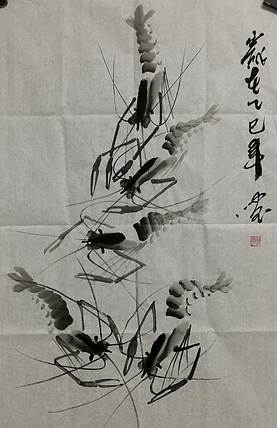 歲在乙巳年